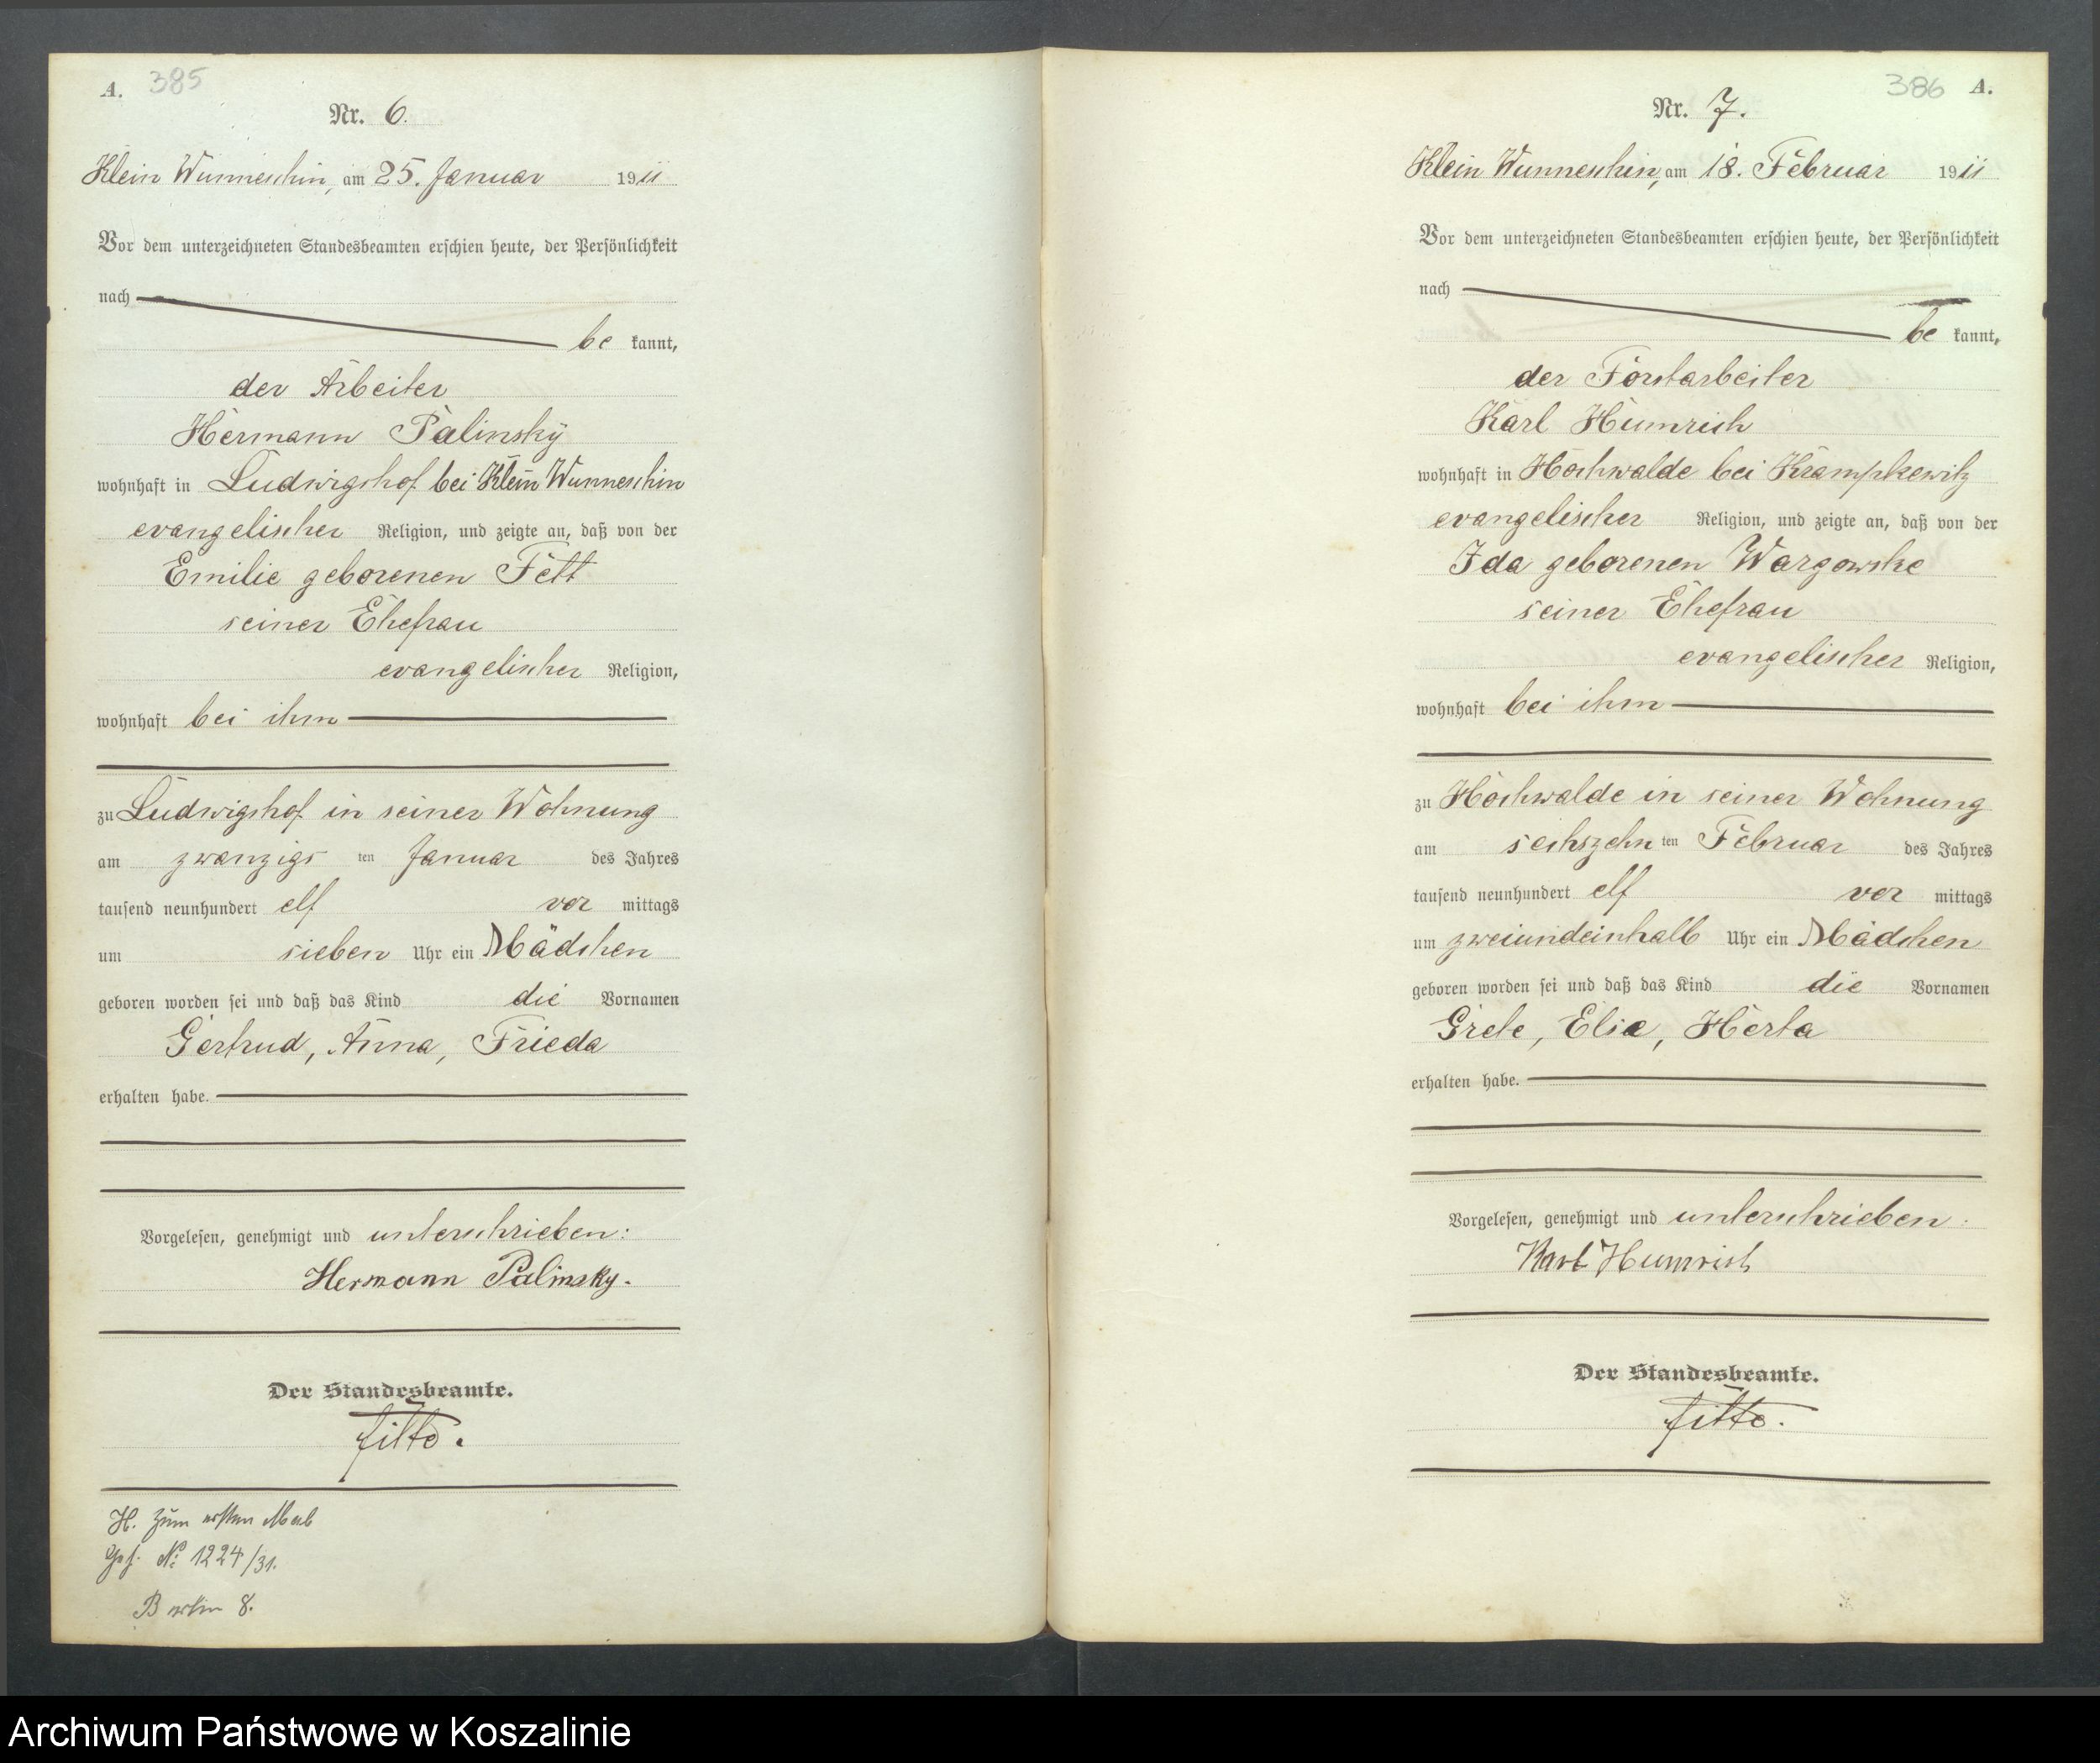 A. 385
Nr. 6.
Klein Wunneschin, am 25. Januar 1911
Vor dem unterzeichneten Standesbeamten erschien heute, der Persönlichkeit
nach
be kannt,
der Arbeiter
Hermann Palinsky
wohnhaft in Ludwigshof bei Klein Wunneschin
evangelischer Religion, und zeigte an, daß von der
Emilie geborenen Fett
seiner Ehefrau
evangelischer Religion,
wohnhaft bei ihm
zu Ludwigshof in seiner Wohnung
am zwanzigs ten Januar des Jahres
tausend neunhundert elf vor mittags
um sieben Uhr ein Mädchen
geboren worden sei und daß das Kind die Vornamen
Gertrud, Anna, Frieda
erhalten habe.
Vorgelesen, genehmigt und unterschrieben:
Hermann Palinsky.
Der Standesbeamte.
H. zum ersten Mal
No 1224/31.
Berlin 8.
386 A.
Nr. 7.
Klein Wunneschin, am 18. Februar 1911
Vor dem unterzeichneten Standesbeamten erschien heute, der Persönlichkeit
nach
be kannt,
der Forstarbeiter
Karl Humrich
wohnhaft in Hochwalde bei Krampkewitz
evangelischer Religion, und zeigte an, daß von der
Ida geborenen Wargowske
seiner Ehefrau
evangelischer Religion,
wohnhaft bei ihm
zu Hochwalde in seiner Wohnung
am sechszehn ten Februar des Jahres
tausend neunhundert elf vor mittags
um zweiundeinhalb Uhr ein Mädchen
geboren worden sei und daß das Kind die Vornamen
Grete, Else, Herta
erhalten habe.
Vorgelesen, genehmigt und unterschrieben.
Karl Humrich
Der Standesbeamte.
Archiwum Państwowe w Koszalinie